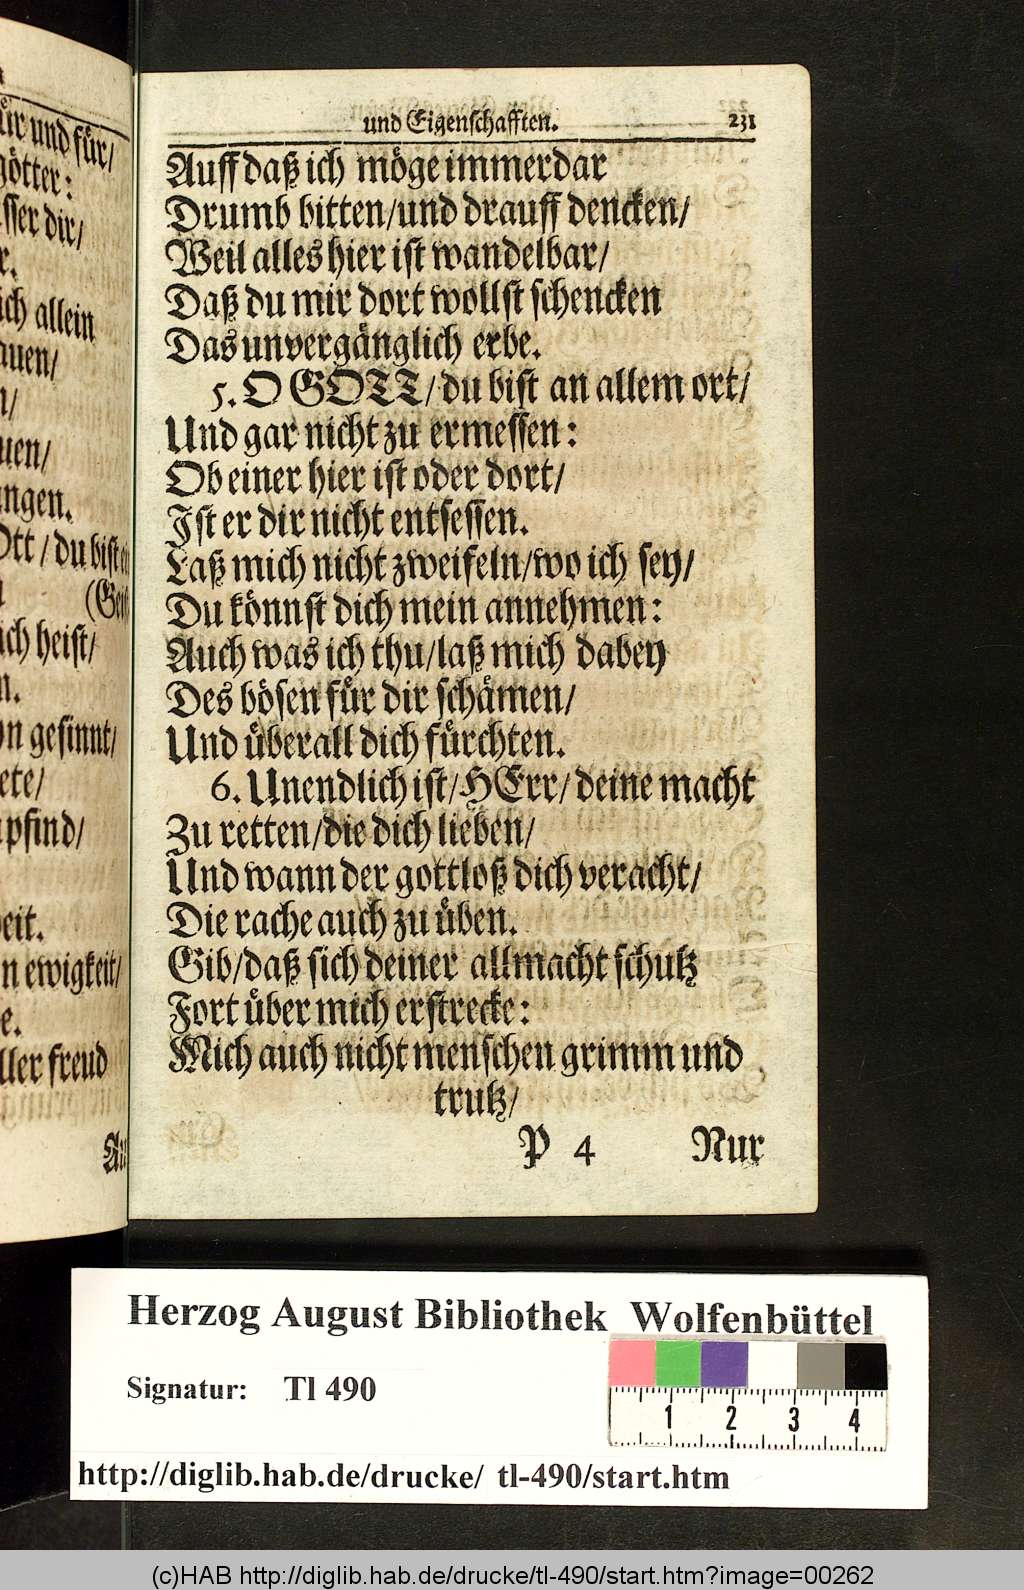 ůr und fůr/
götter:
sser dir/
r.
ich allein
auen/
n/
uen/
ngen.
Ott / du bist ei
(Geist
ich heist/
n.
on gesinnt/
ete/
pfind/
eit.
n ewigkeit/
e.
ller freud
Au
und Eigenschafften. 231
Auff daß ich möge immerdar
Drumb bitten/und drauff dencken/
Weil alles hier ist wandelbar/
Daß du mir dort wollst schencken
Das unvergänglich erbe.
5. O GOTT/ du bist an allem ort/
Und gar nicht zu ermessen:
Ob einer hier ist oder dort/
Ist er dir nicht entsessen.
Laß mich nicht zweifeln/wo ich sey/
Du könnst dich mein annehmen:
Auch was ich thu/laß mich dabey
Des bösen fůr dir schämen/
Und ůberall dich fůrchten.
6. Unendlich ist/HErr/ deine macht
Zu retten/die dich lieben/
Und wann der gottloß dich veracht/
Die rache auch zu ůben.
Gib/daß sich deiner allmacht schutz
Fort ůber mich erstrecke:
Mich auch nicht menschen grimm und
trutz/
P 4 Nur
Herzog August Bibliothek Wolfenbüttel
Signatur: Tl 490
1 2 3 4
http://diglib.hab.de/drucke/ tl-490/start.htm
(c)HAB http://diglib.hab.de/drucke/tl-490/start.htm?image=00262